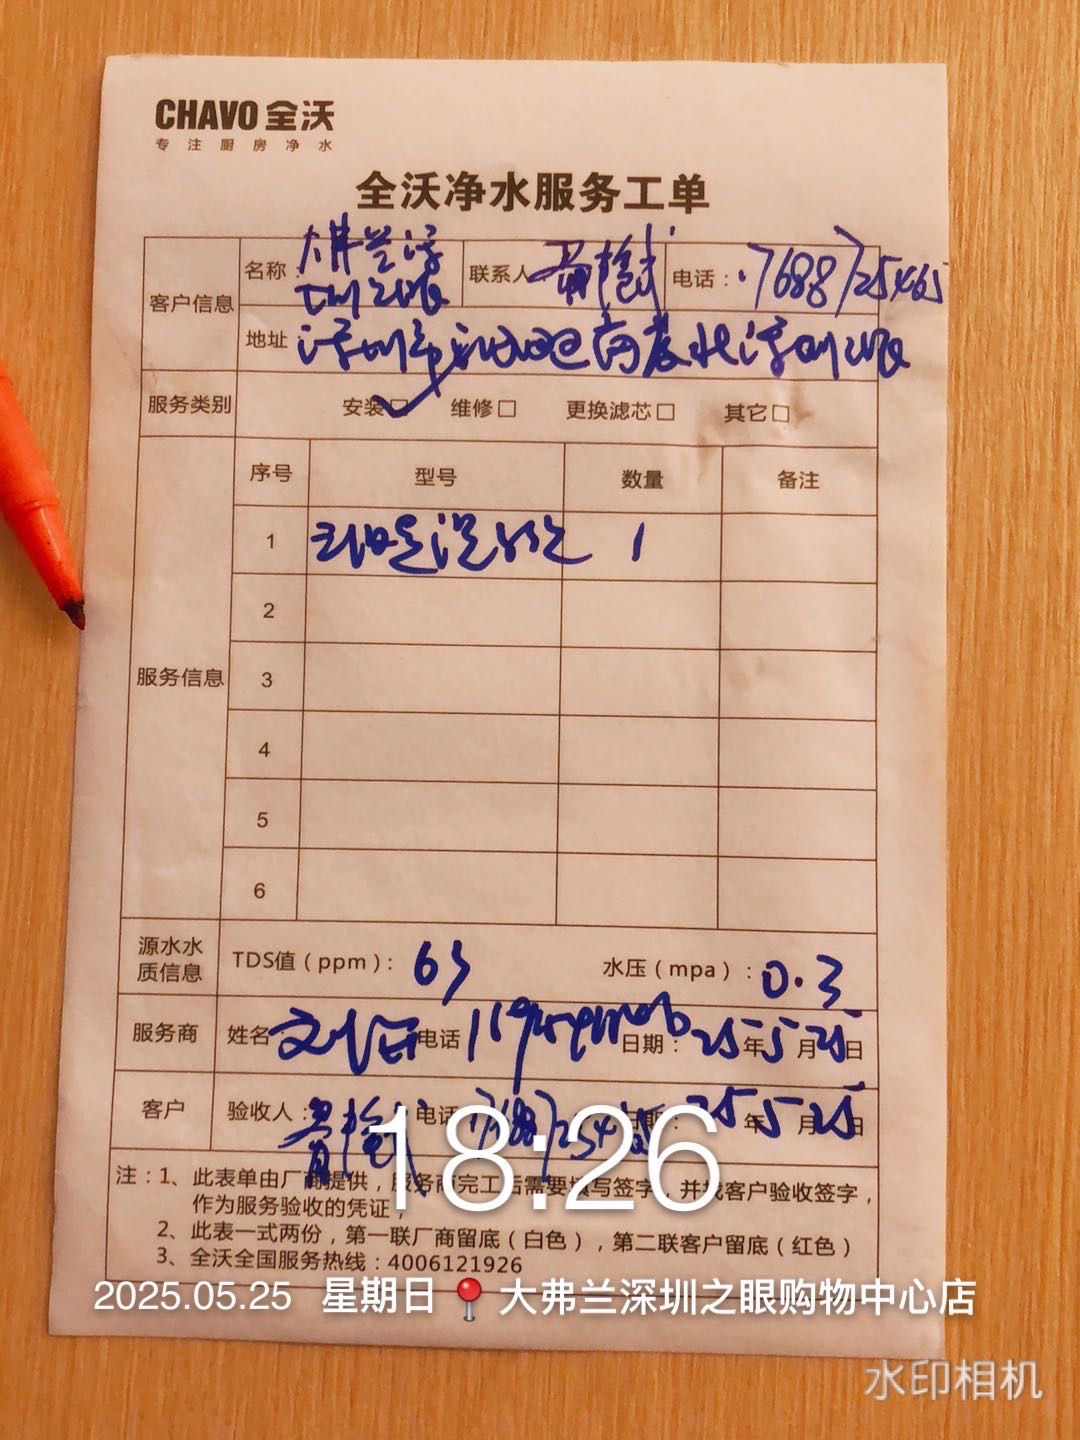 CHAVO 全沃
专注厨房净水
全沃净水服务工单
客户信息
名称： 大弗兰深圳之眼
联系人
电话： 17688725465
地址 深圳市 深圳之眼
服务类别 安装 维修 更换滤芯 其它
服务信息
序号 型号 数量 备注
1 1
2
3
4
5
6
源水水质信息 TDS值（ppm）： 63 水压（mpa）： 0.3
服务商 姓名： 电话 日期： 25年5月25日
客户 验收人： 电话 日期： 25年5月25日
注：1、此表单由厂商提供，服务商完工后需要填写签字，并找客户验收签字，
作为服务验收的凭证，
2、此表一式两份，第一联厂商留底（白色），第二联客户留底（红色）
3、全沃全国服务热线：4006121926
18:26
2025.05.25 星期日 大弗兰深圳之眼购物中心店
水印相机